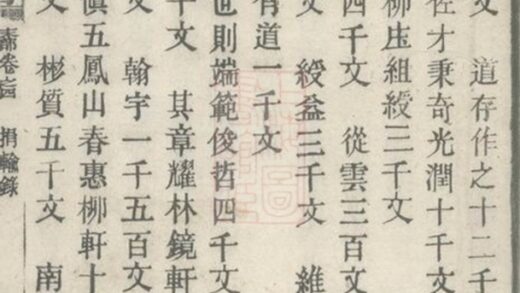 文 道存作之十二千
佐才秉奇光潤十千文
柳庄組綬三千文
四千文 從雲三百文
文 綬益三千文 維
有道一千文
也則端範俊哲四千文
千文 其章耀林鏡軒
文 翰宇一千五百文
慎五鳳山春惠柳軒十
文 彬質五千文 南
齋卷旨 捐輸錄